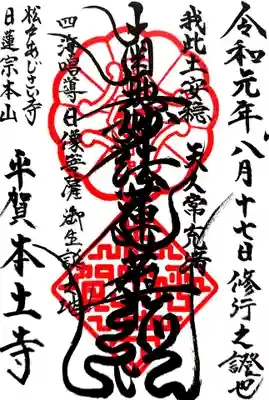 令和元年八月十七日修行之證也
我此土安穏
天人常充満
南無妙法蓮華経
四海唱導日像菩薩御生誕之地
松戸あじさい寺
日蓮宗本山
平賀本土寺